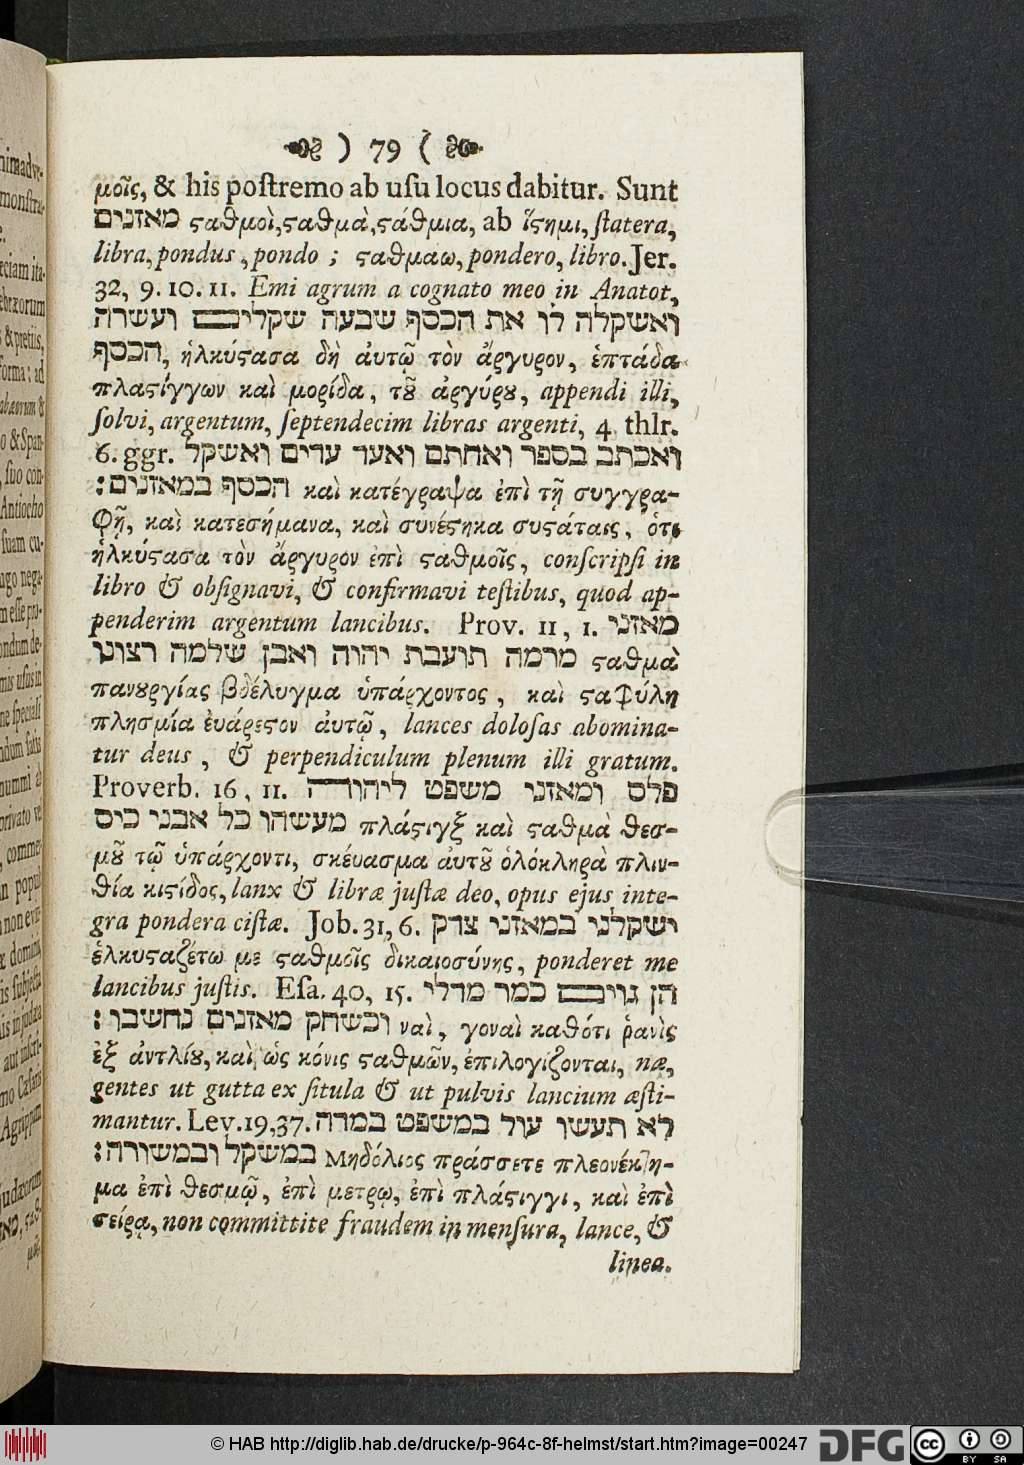 ) 79 (
μοῖς, & his poſtremo ab uſu locus dabitur. Sunt
מאזנים ϛαθμοὶ, ϛαθμὰ, ϛάθμια, ab ἵϛημι, ſtatera,
libra, pondus, pondo ; ϛαθμαω, pondero, libro. Jer.
32, 9. 10. 11. Emi agrum a cognato meo in Anatot,
ואשקלה לו את הכסף שבעה שקלים ועשרה
הכסף, ἡλκύϛασα δὴ ἀυτῷ τὸν ἄργυρον, ἑπτάδα
πλαϛίγγων καὶ μορίδα, τȣ͂ ἀργύρȣ, appendi illi,
ſolvi, argentum, ſeptendecim libras argenti, 4 thlr.
6. ggr. ואכתב בספר ואחתם ואעד עדים ואשקל
הכסף במאזנים׃ καὶ κατέγραψα ἐπὶ τῇ συγγρα-
φῇ, καὶ κατεσήμανα, καὶ συνέϛηκα συϛάταις, ὁτι
ἡλκύϛασα τὸν ἄργυρον ἐπὶ ϛαθμοῖς, conſcripſi in
libro & obſignavi, & confirmavi teſtibus, quod ap-
penderim argentum lancibus. Prov. 11, 1. מאזני
מרמה תועבת יהוה ואבן שלמה רצונו ϛαθμὰ
πανȣργίας βδέλυγμα ὑπάρχοντος, καὶ ϛαφύλη
πλησμία ἐυάρεϛον ἀυτῷ, lances doloſas abomina-
tur deus, & perpendiculum plenum illi gratum.
Proverb. 16, 11. פלס ומאזני משפט ליהוה
מעשהו כל אבני כיס πλάϛιγξ καὶ ϛαθμὰ θεσ-
μȣ͂ τῷ ὑπάρχοντι, σκέυασμα ἀυτȣ͂ ὁλόκληρὰ πλιν-
θία κιϛίδος, lanx & libræ juſtæ deo, opus ejus inte-
gra pondera ciſtæ. Job. 31, 6. ישקלני במאזני צדק
ἑλκυϛαζέτω με ϛαθμοῖς δικαιοσύνης, ponderet me
lancibus juſtis. Eſa. 40, 15. הן גוים כמר מדלי
וכשחק מאזנים נחשבו׃ ναὶ, γοναὶ καθότι ῥανὶς
ἐξ ἀντλίȣ, καὶ ὡς κόνις ϛαθμῶν, ἐπιλογίζονται, næ,
gentes ut gutta ex ſitula & ut pulvis lancium æſti-
mantur. Lev. 19, 37. לא תעשו עול במשפט במדה
במשקל ובמשורה׃ Μηδόλιος πράσσετε πλεονέκτη-
μα ἐπὶ θεσμῷ, ἐπὶ μετρῳ, ἐπὶ πλάϛιγγι, καὶ ἐπὶ
σείρᾳ, non committite fraudem in menſura, lance, &
linea.
© HAB http://diglib.hab.de/drucke/p-964c-8f-helmst/start.htm?image=00247
DFG
cc BY SA